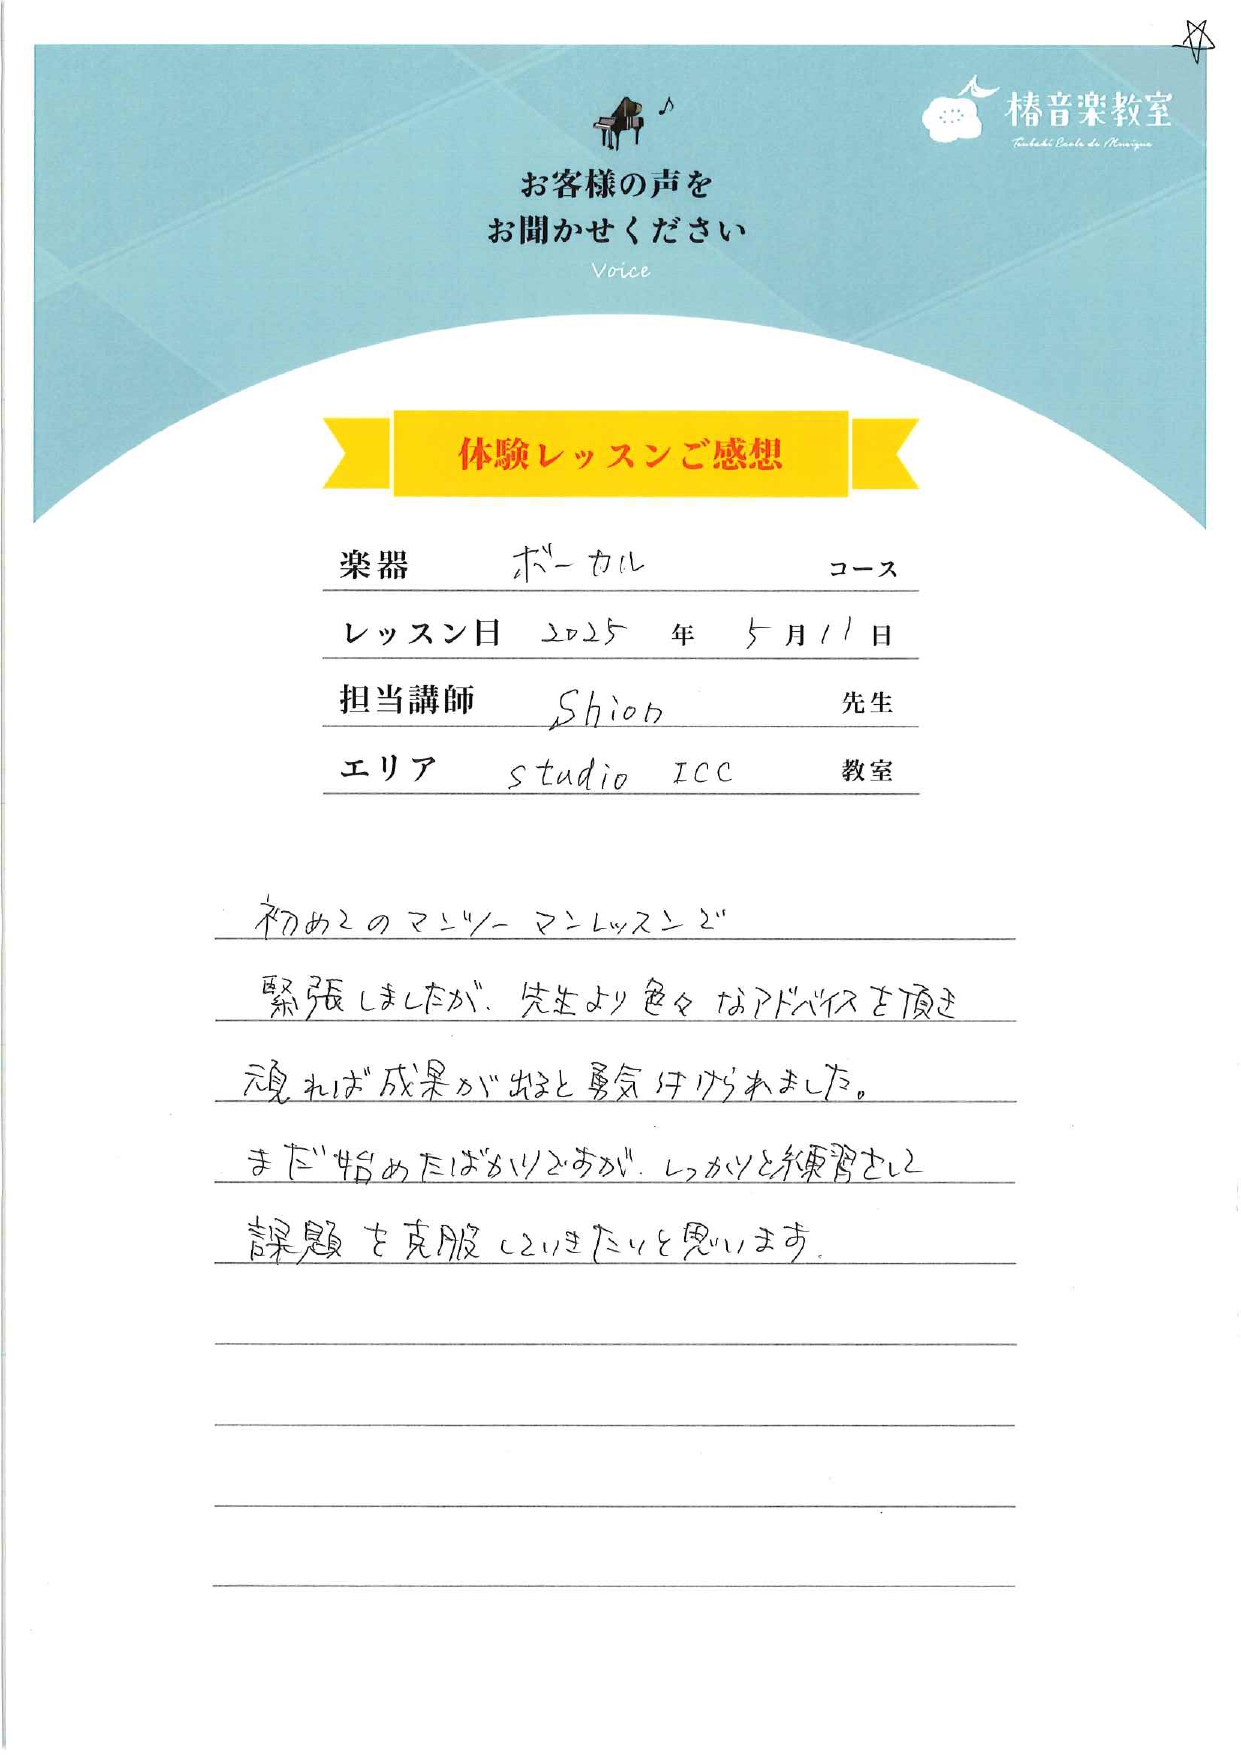 椿音楽教室
Tsubaki Ecole de Musique
お客様の声を
お聞かせください
Voice
体験レッスンご感想
楽器 ボーカル コース
レッスン日 2025 年 5 月 11 日
担当講師 Shion 先生
エリア studio ICC 教室
初めてのマンツーマンレッスンで
緊張しましたが、先生より色々なアドバイスを頂き
頑れば成果が出ると勇気付けられました。
まだ始めたばかりですが、しっかりと練習をして
課題を克服していきたいと思います。